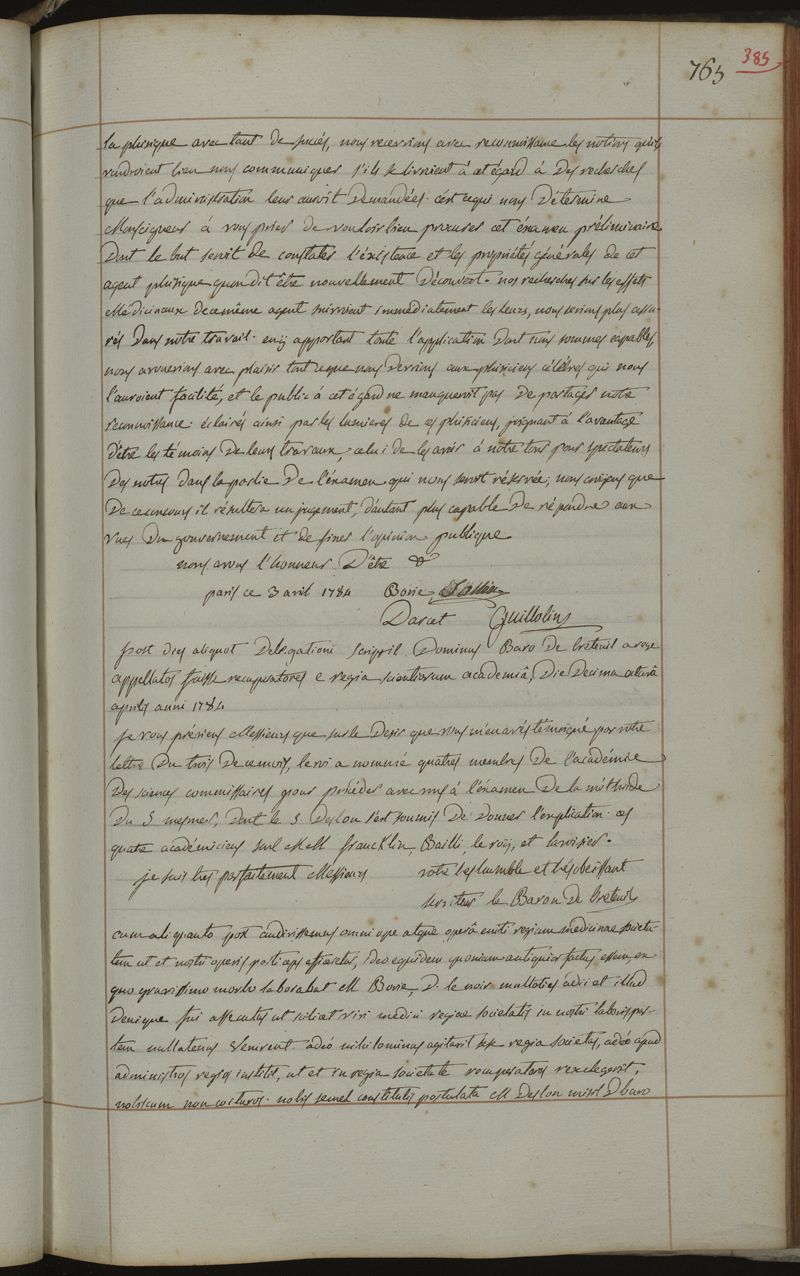 765 385
la phisique avec tant de succès, nous recevrions avec reconnoissance les notions qu'ils
voudroient bien nous communiquer s'ils se livroient à cet égard à des recherches
que l'administration leur auroit demandées. c'est ce qui nous détermine
Monseigneur à vous prier de vouloir bien procurer cet examen préliminaire
Dont le but seroit de constater l'éxistence et les propriétés générales de cet
agent phisique qu'on dit être nouvellement découvert. nos recherches sur les effets
Médicinaux de ce même agent suivroient immédiatement les leurs, nous serions plus assu-
rés Dans notre travail. en y apportant toute l'application dont nous sommes capables,
nous avouerions avec plaisir tout ce que nous devrions aux phisiciens célèbres qui nous
l'auroient facilité, et le public à cet égard ne manqueroit pas de partager notre
reconnoissance. éclairés ainsi par les lumieres de ces phisiciens, joignant à l'avantage
d'être les témoins de leurs travaux celui de les avoir à notre tour pour spectateurs
des notres dans la partie de l'éxamen qui nous seroit réservée; nous croyons que
de ce concours il résultera un jugement, d'autant plus capable de répondre aux
vues du gouvernement et de fixer l'opinion publique
nous avons l'honneur d'être &
paris ce 3 avril 1784 Borie Sallin
Darcet Guillotin
post dies aliquot delegationi scripsit Dominus Baro de breteuil a rege
appellatos fuisse recuperatores e regia scientiarum academiâ, die decima
aprilis anni 1784
je vous préviens Messieurs que sur le desir que vous m'en avés témoigné par votre
lettre du trois de ce mois, le roi a nommé quatres membres de l'académie
des sciences commissaires pour procéder avec vous à l'éxamen de la méthode
du S mesmer, dont le S. Deslon s'est soumis de donner l'explication. ces
quatre académiciens sont MM francklin, Bailli, le roy, et lavoisier.
je suis tres parfaitement Messieurs votre tres humble et tres obeissant
serviteur le Baron de breteuil
cum aliquanto post audivissemus omni ope atque operâ eniti regiam medicinae societa-
tem ut et nostri operis particeps efficeretur, ideo equidem quoniam antiquior factus essem, ex
quo gravissimo morbo laborabat M Borie, D. le noir multoties adii et illud
denique fui assecutus ut scilicet viri medici regiae societatis in nostri laboris par-
tem nullatenus venirent. adeò nihilominus agitavit se regia societas, adeò apud
administros regios institit, ut et in regia societate recuperatores rex elegerit,
nobiscum non coituros. nobis semel constitutis postulata M Deslon misit D baro